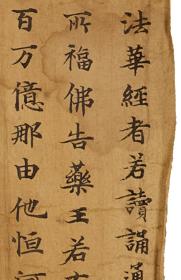 法華經者若讀誦通
所福佛告藥王若有
百万億那由他恒河